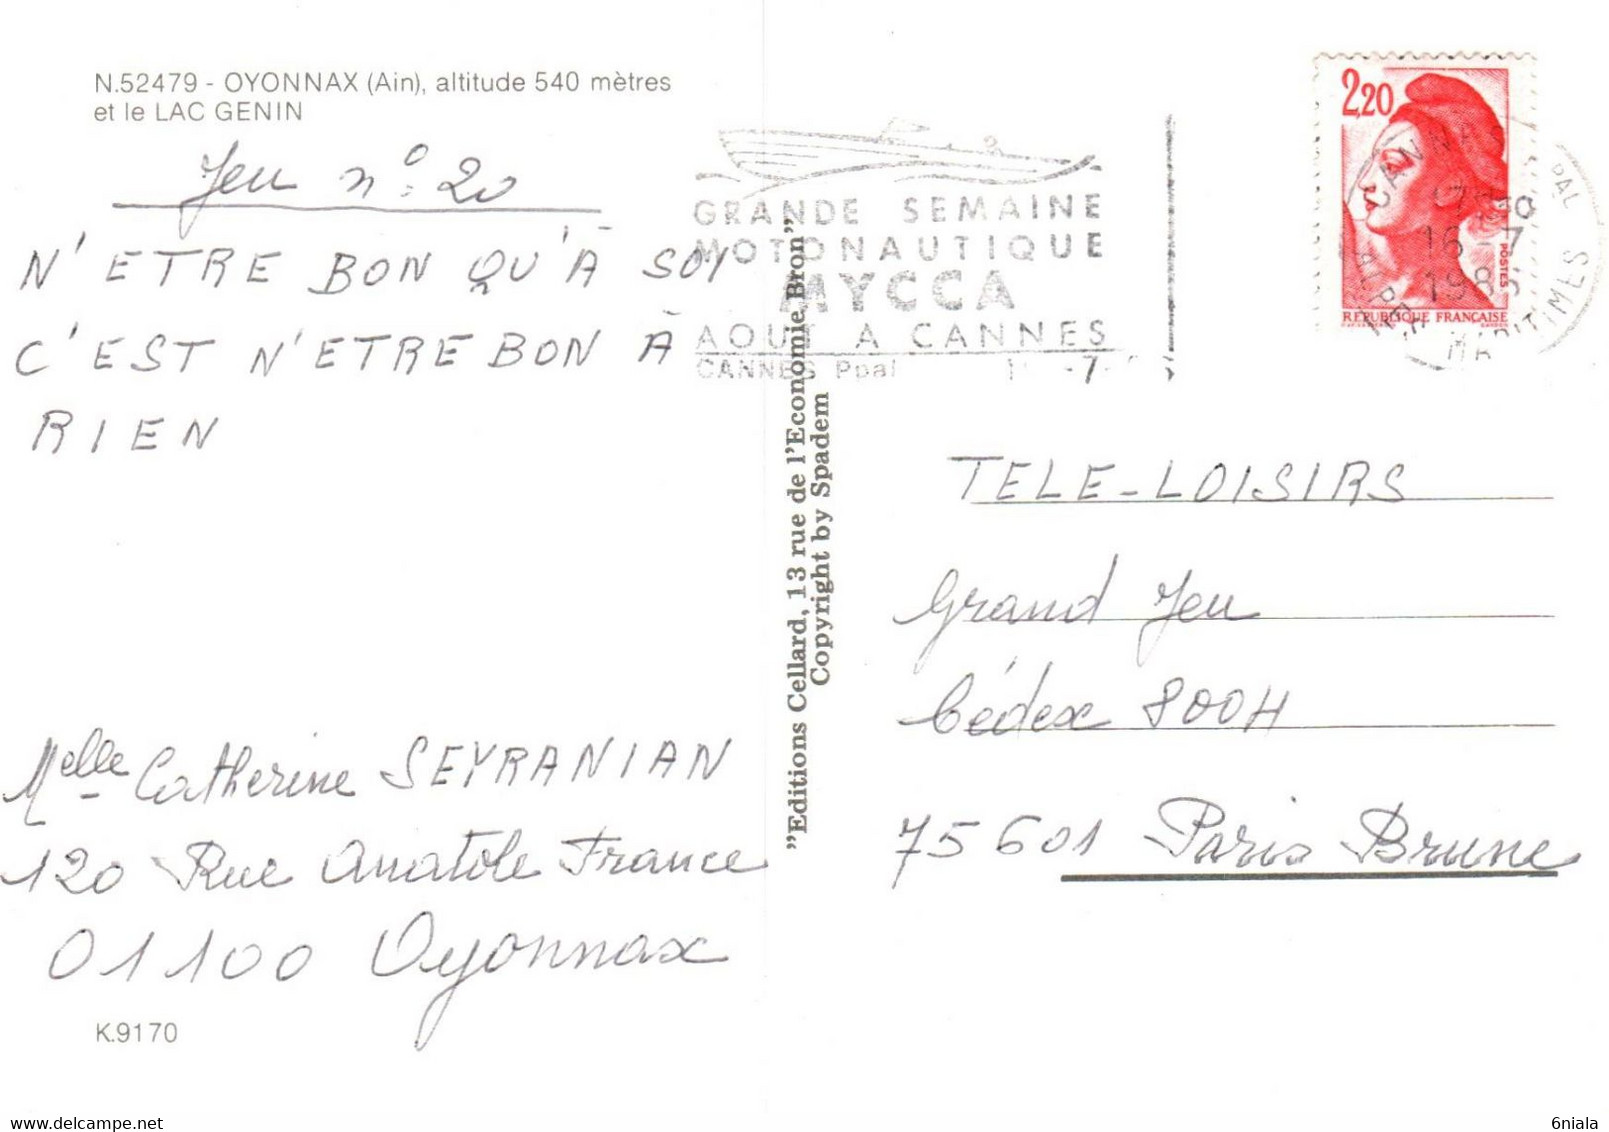 N.52479 - OYONNAX (Ain), altitude 540 mètres
et le LAC GENIN
Jeu n°: 20
N'ETRE BON QU'À SOI
C'EST N'ETRE BON À
RIEN
Melle Catherine SEYRANIAN
120 Rue Anatole France
01100 Oyonnax
K.9170
"Editions Cellard, 13 rue de l'Economie, Bron"
Copyright by Spadem
GRANDE SEMAINE
MOTONAUTIQUE
MYCCA
AOUT A CANNES
CANNES Ppal
2,20
POSTES
RÉPUBLIQUE FRANÇAISE
16-7
MARITIMES
TELE-LOISIRS
Grand Jeu
Cédex 800H
75601 Paris Brune
6niala